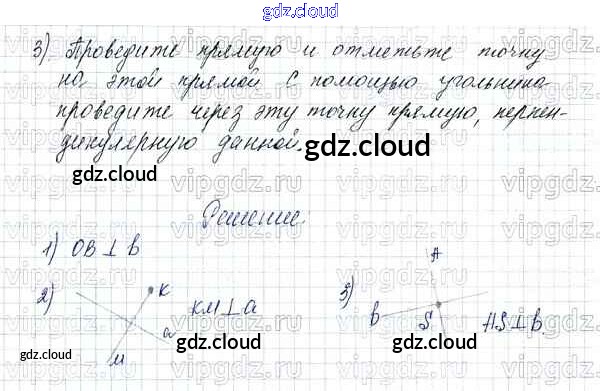 gdz.cloud
3) Проведите прямую и отметьте точку
на этой прямой С помощью угольника
проведите через эту точку прямую, перпен-
дикулярную данной.
gdz.cloud
gdz.cloud
Решение:
1) OB ⊥ b
2) K KM ⊥ a
a
M
3) A
b S AS ⊥ b.
gdz.cloud
gdz.cloud
gdz.cloud
vipgdz.ru